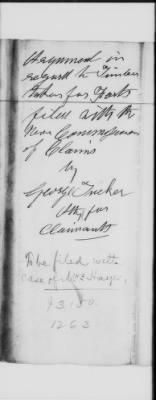 Argument in
regard to Timber
taken for Forts
filed with the
Commissioners
of Claims
by
George Tucker
Atty for
Claimants
To be filed with
case of Wm
1263